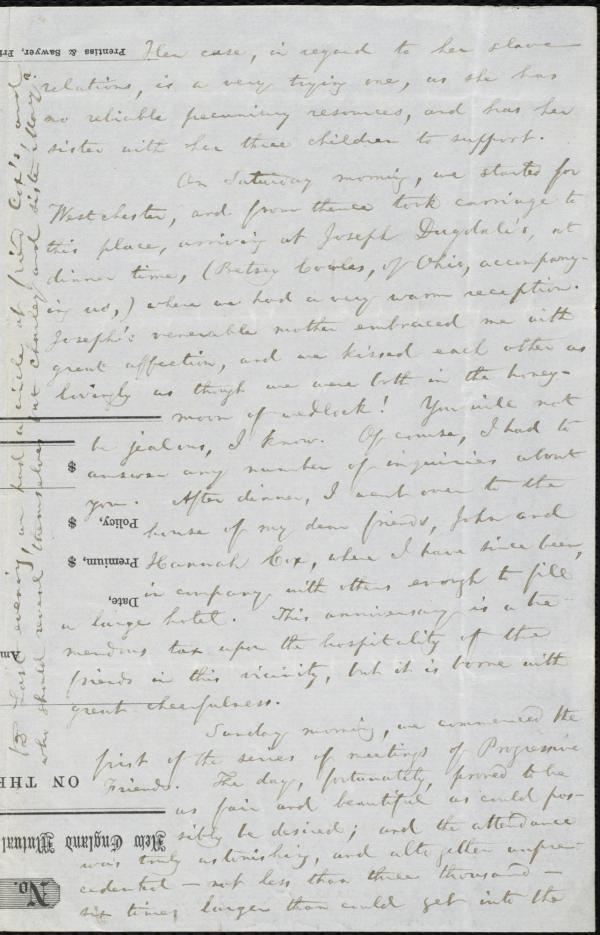 Her case, in regard to her slave
relations, is a very trying one, as she has
no reliable pecuniary resources, and has her
sister with her three children to support.
On Saturday morning, we started for
West Chester, and from thence took carriage to
this place, arriving at Joseph Dugdale's, at
dinner time, (Betsey Cowles, of Ohio, accompany-
ing us,) where we had a very warm reception.
Joseph's venerable mother embraced me with
great affection, and we kissed each other as
lovingly as though we were both in the honey-
moon of wedlock! You will not
be jealous, I know. Of course, I had to
answer any number of inquiries about
you. After dinner, I went over to the
house of my dear friends, John and
Hannah Cox, where I have since been,
in company with others enough to fill
a large hotel. This anniversary is a tre-
mendous tax upon the hospitality of the
friends in this vicinity, but it is borne with
great cheerfulness.
Sunday morning, we commenced the
first of the series of meetings of Progressive
Friends. The day, fortunately, proved to be
as fair and beautiful as could pos-
sibly be desired; and the attendance
was truly astonishing, and altogether unpre-
cedented — not less than three thousand —
six times larger than could get into the
Last evening, we had a circle at friend Cox's, and
who should reveal themselves but Charley and sister Mary?
Prentiss & Sawyer, Pri
$
Policy, $
Premium, $
Date,
Am
ON THE
New England Mutual
No.